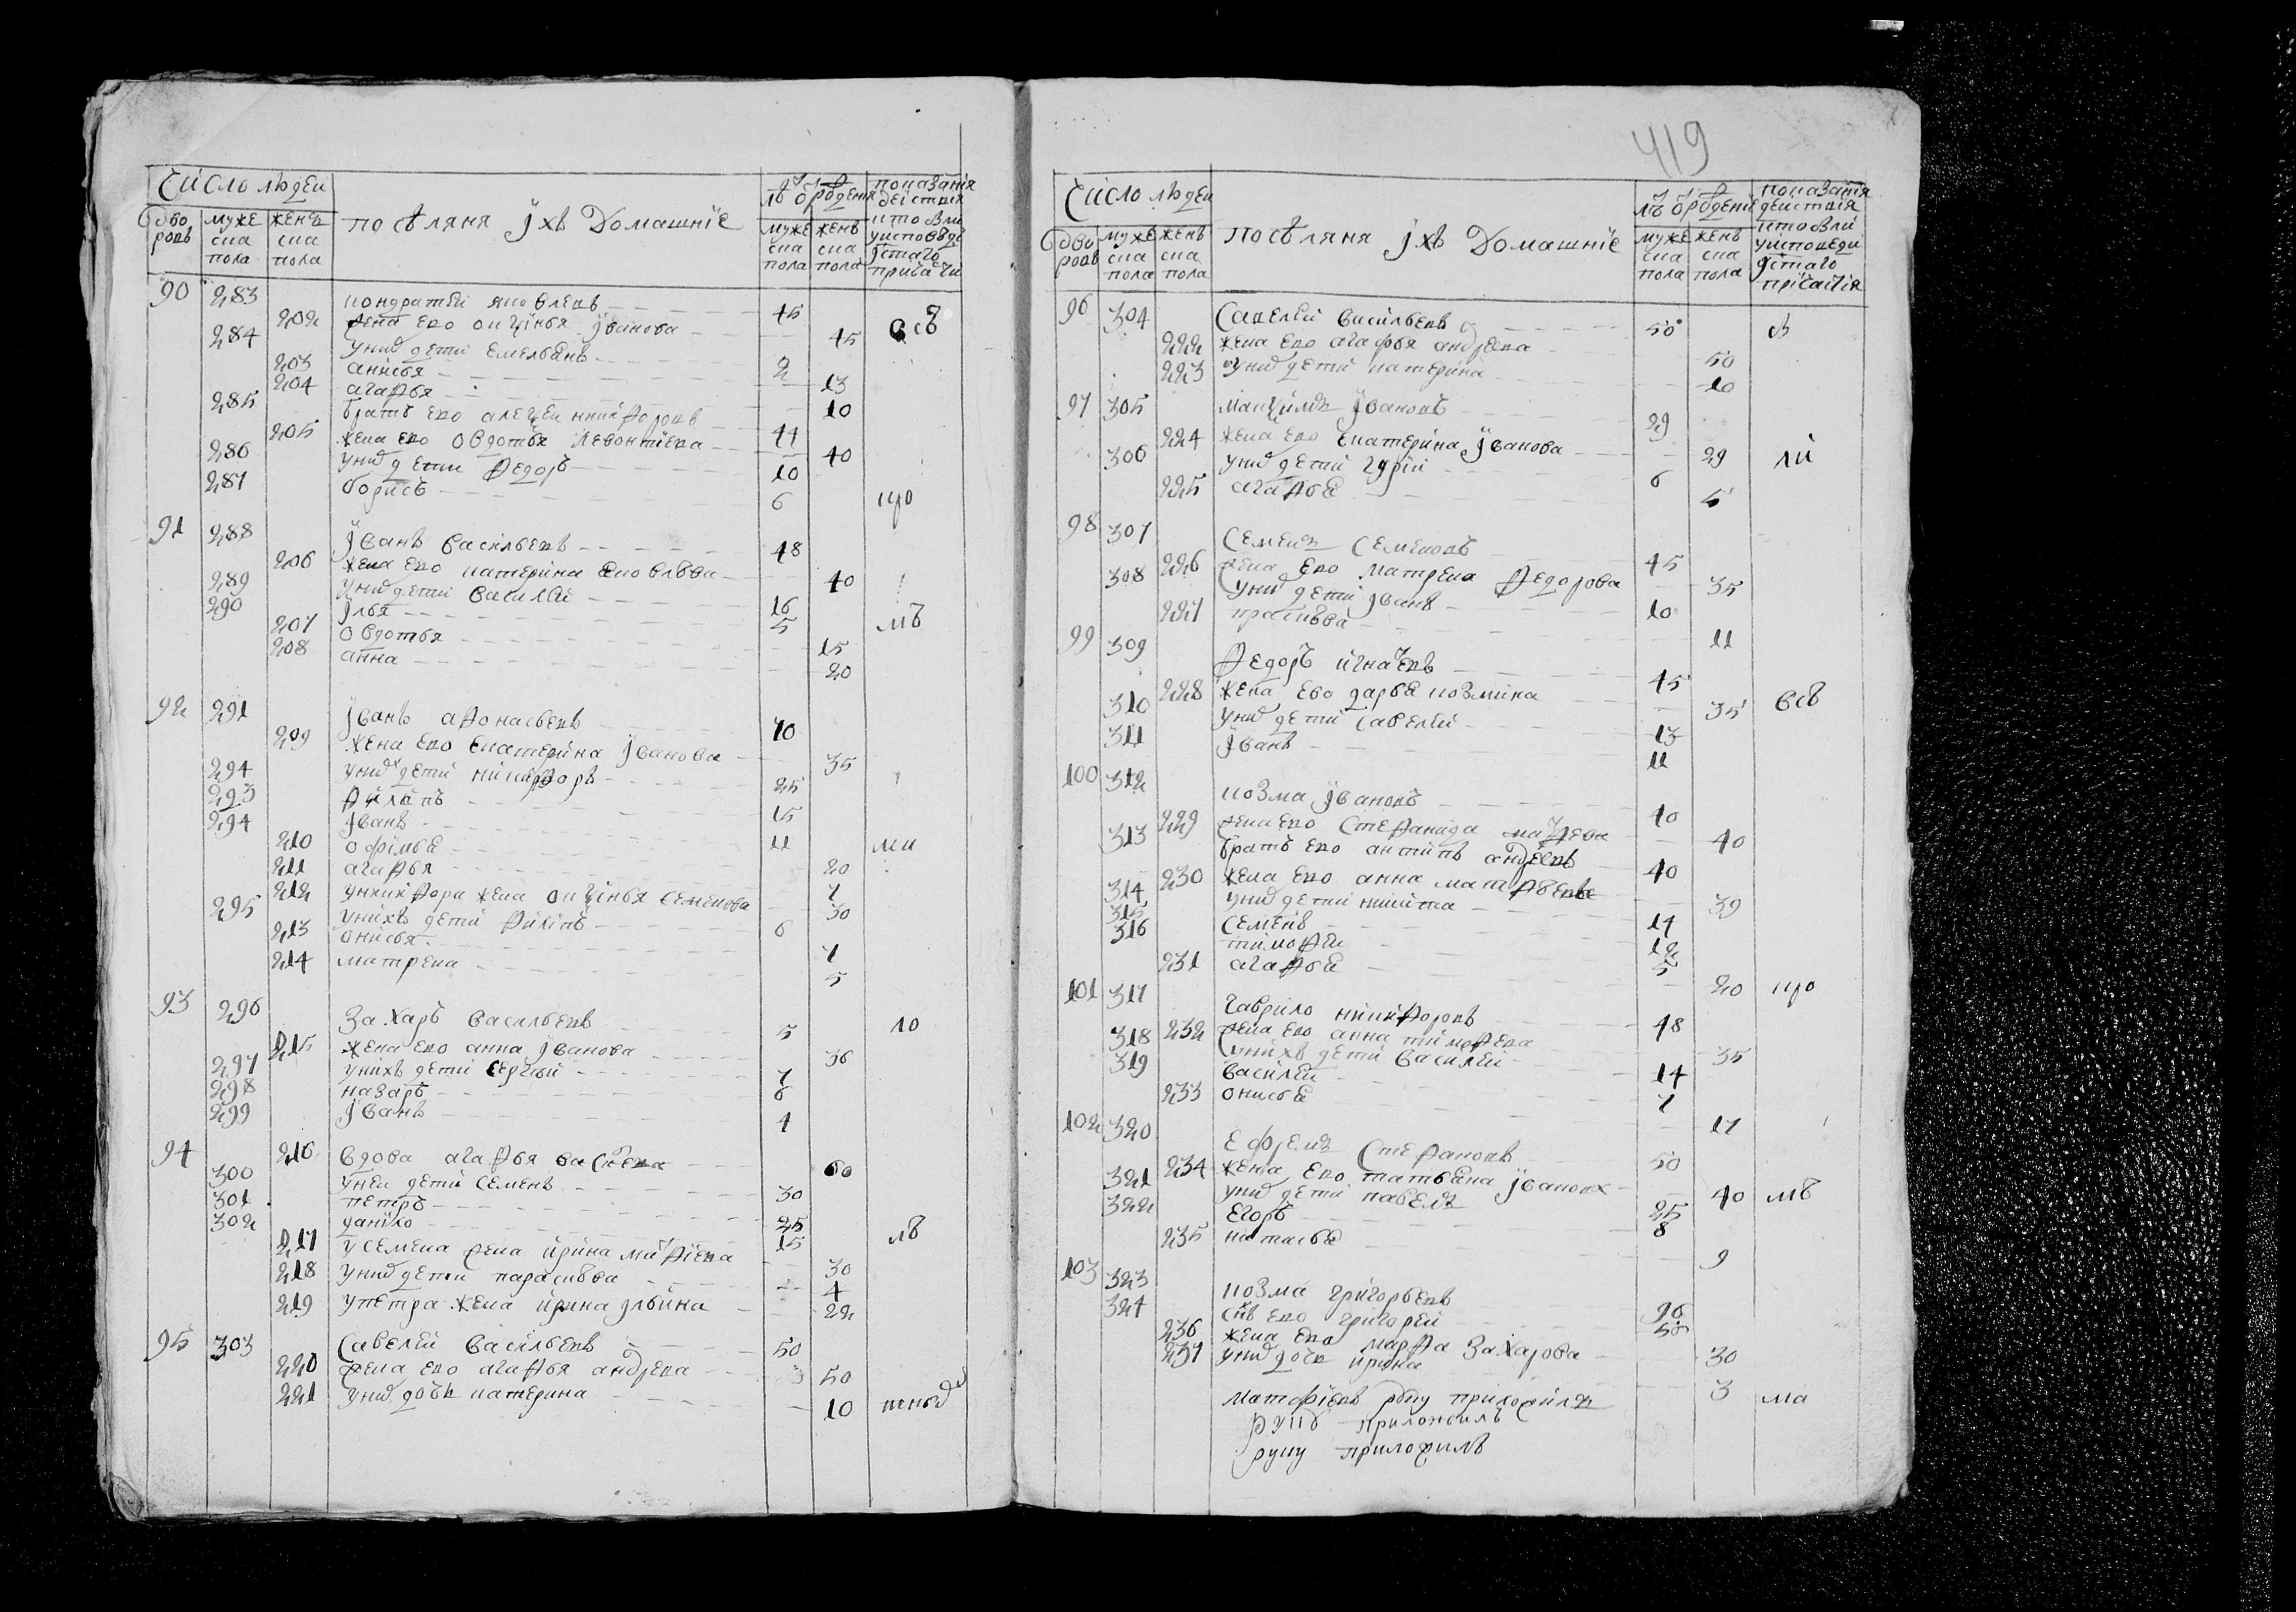 число людеи
дво ровъ
мужеска пола
женъ ска пола
посѣляня ихъ домашние
лѣ ѿ рождения
муже ска пола
женъ ска пола
показания действия кто были у исповеди и стаго причастия
90 283 кондратеи яковлевъ 45
202 жена ево оксинья иванова 45 всѣ
284 у них дети емельянъ 2
203 анисья 13
204 агафья 10
285 братъ ево алексеи никифоровъ 44
205 жена ево овдотья левонтиева 40
286 у них дети федоръ 10
287 борисъ 6 про
91 288 иванъ васильевъ 48
206 жена ево катерина яковлева 40
289 у них дети василеи 16
290 илья 5 лѣ
207 овдотья 15
208 анна 20
92 291 иванъ афонасьевъ 70
209 жена ево екатерина иванова 35
294 у них дети никифоръ 25
293 филипъ 15
294 иванъ 11
210 офимья 20
211 агафья 7
212 у никифора жена оксинья семенова 30
295 у нихъ дети филипъ 6
213 онисья 7
214 матрена 5
93 296 захаръ васильевъ 5 ло
215 жена ево анна иванова 36
297 у нихъ дети сергѣи 7
298 назаръ 6
299 иванъ 4
94 216 вдова агафья васильева 60
300 у неи дети семенъ 30
301 петръ 25
302 данило 15 лѣ
217 у семена жена ирина матфиева 30
218 у них дети парасковья 4
219 у петра жена ирина ильина 22
95 303 савелеи васильевъ 50
220 жена ево агафья андрева 50
221 у них дочь катерина 10
419
число людеи
дво ровъ
муже ска пола
женъ ска пола
посѣляня ихъ домашние
лѣ ѿ рождения
муже ска пола
женъ ска пола
показания действия кто были у исповеди и стаго причастия
96 304 савелеи васильевъ 50
222 жена ево агафья андрева 50
223 у них дети катерина 10
97 305 максимъ ивановъ 29
224 жена ево екатерина иванова 29 ли
306 у них дети гурии 6
225 агафья 5
98 307 семенъ семеновъ 45
226 жена ево матрена федорова 35
308 у них дети иванъ 10
227 прасковья 11
99 309 федоръ игнатевъ 45
228 жена ево дарья козмина 35 всѣ
310 у них дети савелеи 13
311 иванъ 11
100 312 козма ивановъ 40
229 жена ево стефанида матфева 40
313 братъ ево антипъ андреевъ 40
230 жена ево анна матфевева 39
314 у них дети никита 14
315 семенъ 12
316 тимофеи 5
231 агафья 20 про
101 317 гаврило никифоровъ 48
232 жена ево анна тимофева 35
318 у нихъ дети василеи 14
319 василеи 7
233 онисья 17
102 320 ефремъ стефановъ 50
234 жена ево татьяна иванова 40 лѣ
321 у них дети павелъ 25
322 егоръ 8
235 настасья 9
103 323 козма григорьевъ 96
324 снъ ево григореи 50
236 жена ево марфа захарова 30
237 у них дочь ирина 3 ма
матфиевъ руку приложилъ
руку приложилъ
руку приложилъ